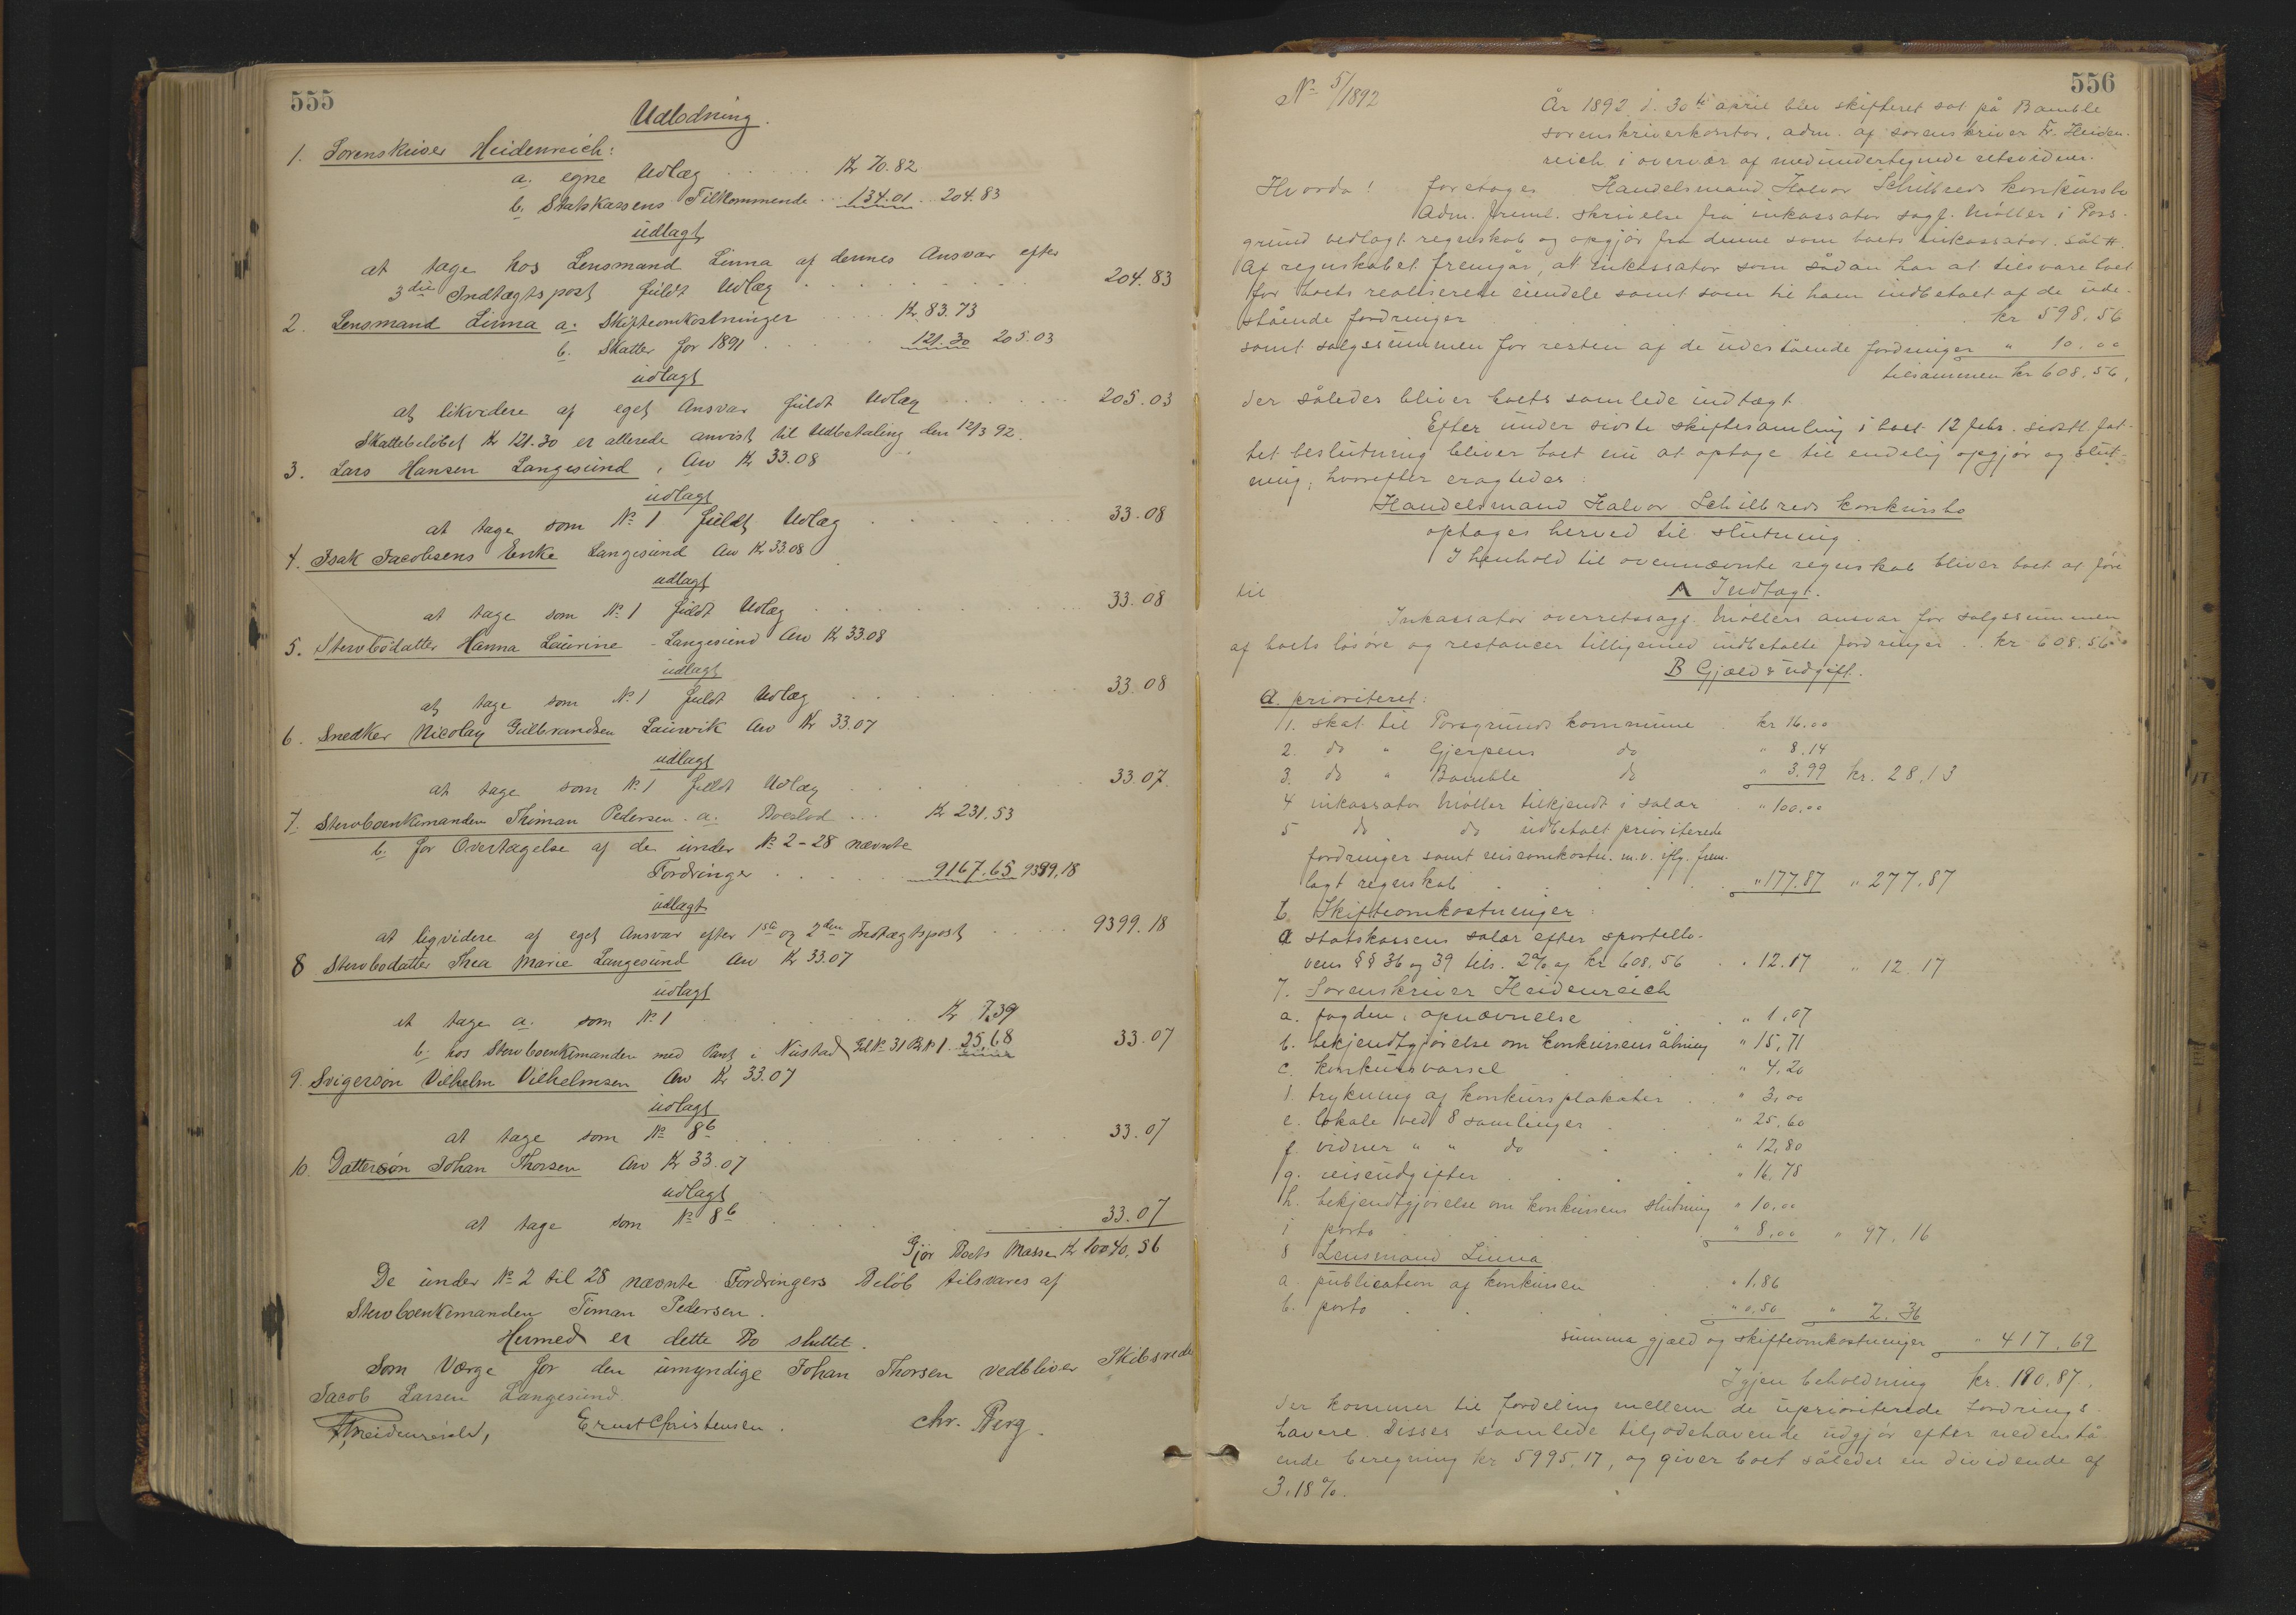 555
Udlodning.
1. Sorenskriver Heidenreich:
a. egne Udlæg . . . . . . Kr 70.82
b. Statskassens Tilkommende . . 134.01 . . 204.83
udlagt
at tage hos Lensmand Linna af dennes Ansvar efter
3die Indtægtspost fuldt Udlæg . . . . . . . . 204.83
2. Lensmand Linna a. Skifteomkostninger . . . . . Kr. 83.73
b. Skatter for 1891 . . . . . . 121.30 205.03
udlagt
at likvidere af eget Ansvar fuldt Udlæg . . . . . 205.03
Skattebeløbet Kr 121.30 er allerede anvist til Udbetaling den 12/3 92.
3. Lars Hansen Langesund, Arv Kr 33.08
udlagt
at tage som No 1 fuldt Udlæg . . . . . . . . 33.08
4. Isak Jacobsens Enke Langesund Arv Kr 33.08
udlagt
at tage som No 1 fuldt Udlæg . . . . . . . . 33.08
5. Stervbodatter Hanna Laurine - Langesund Arv Kr 33.08
udlagt
at tage som No 1 fuldt Udlæg . . . . . . . . 33.08
6. Snedker Nicolay Gulbrandsen Laurvik Arv Kr 33.07
udlagt
at tage som No 1 fuldt Udlæg . . . . . . . . 33.07.
7. Stervboenkemanden Thiman Pedersen. a. Boeslod . . . Kr 231.53
b. for Overtagelse af de under No 2-28 nævnte
Fordringer . . . . . . 9167.65 9399.18
udlagt
at liqvidere af eget Ansvar efter 1ste og 2den Indtægtspost . . . . . 9399.18
8 Stervbodatter Thea Marie Langesund Arv Kr 33.07
udlagt
at tage a. som No 1 . . . . . . . . Kr 7.39
b. hos Stervboenkemanden med Pant i Nustad Gd No 31 B No 1 . 25.68 33.07
9. Svigersøn Vilhelm Vilhelmsen Arv Kr 33.07
udlagt
at tage som No 8b . . . . . . . . 33.07
10. Dattersøn Johan Thorsen Arv Kr 33.07
udlagt
at tage som No 8b . . . . . . . . 33.07
Gjør Boets Masse Kr 10040.56
De under No 2 til 28 nævnte Fordringers Beløb tilsvares af
Stervboenkemanden Timan Pedersen.
Hermed er dette Bo sluttet.
Som Værge for den umyndige Johan Thorsen vedbliver Skibsreder
Jacob Larsen Langesund.
Fr. Heidenreich, Ernst Christensen. Chr. Berg.
556
No 5/1892
År 1892 d. 30te april blev skifteret sat på Bamble
sorenskriverkontor, adm. af sorenskriver Fr. Heiden-
reich i overvær af medundertegnede retsvidner.
Hvorda! foretages Handelsmand Halvor Schilbreds konkursbo
Adm. freml. skrivelse fra inkassator sagf. Møller i Pors-
grund vedlagt regnskab og opgjør fra denne som boets inkassator.
Af regnskabet fremgår, at inkassator som sådan har at tilsvare boet
for boets realiserede eiendele samt som til ham indbetalt af de ude-
stående fordringer . . . kr 598.56
samt salgssummen for resten af de udestående fordringer " 10.00
tilsammen kr 608.56,
der således bliver boets samlede indtægt.
Efter under sidste skiftesamling i boet 12 febr. sidstl. fat-
tet beslutning bliver boet nu at optage til endelig opgjør og slut-
ning, hvorefter eragtedes:
Handelsmand Halvor Schilbreds konkursbo
optages herved til slutning.
I henhold til ovennævnte regnskab bliver boet at føre
til
A Indtægt.
Inkassator overretssagf. Møllers ansvar for salgssummen
af boets løsøre og restancer tilligemed indbetalte fordringer . . kr 608.56
B Gjæld & udgift.
a. prioriteret:
1. skat til Porsgrunds kommune kr 16.00
2. do " Gjerpens do " 8.14
3. do " Bamble do " 3.99 kr. 28.13
4 inkassator Møller tilkjendt i salær " 100.00
5 do do udbetalt prioriterede
fordringer samt reiseomkostn. m.v. iflg. frem-
lagt regnskab . . . . " 177.87 " 277.87
b. Skifteomkostninger:
a statskassens salær efter sportello-
vens §§ 36 og 39 tils. 2% af kr 608.56 . " 12.17 " 12.17
7. Sorenskriver Heidenreich
a. fogdens opnævnelse . . " 1.07
b. bekjendtgjørelse om konkursens åbning " 15.71
c. konkursvarsel . . " 4.20
d. trykning af konkursplakater . . " 3.00
e. lokale ved 8 samlinger . " 25.60
f. vidner " " do . . " 12.80
g. reiseudgifter . . . " 16.78
h. bekjendtgjørelse om konkursens slutning " 10.00
i porto . . . " 8.00 " 97.16
8 Lensmand Linna
a. publication af konkursen . " 1.86
b. porto . . . . " 0.50 " 2.36
summa gjæld og skifteomkostninger " 417.69
Igjen beholdning kr. 190.87,
der kommer til fordeling mellem de uprioriterede fordrings-
havere. Disses samlede tilgodehavende udgjør efter nedenstå-
ende beregning kr 5995.17, og giver boet således en dividende af
3.18%.